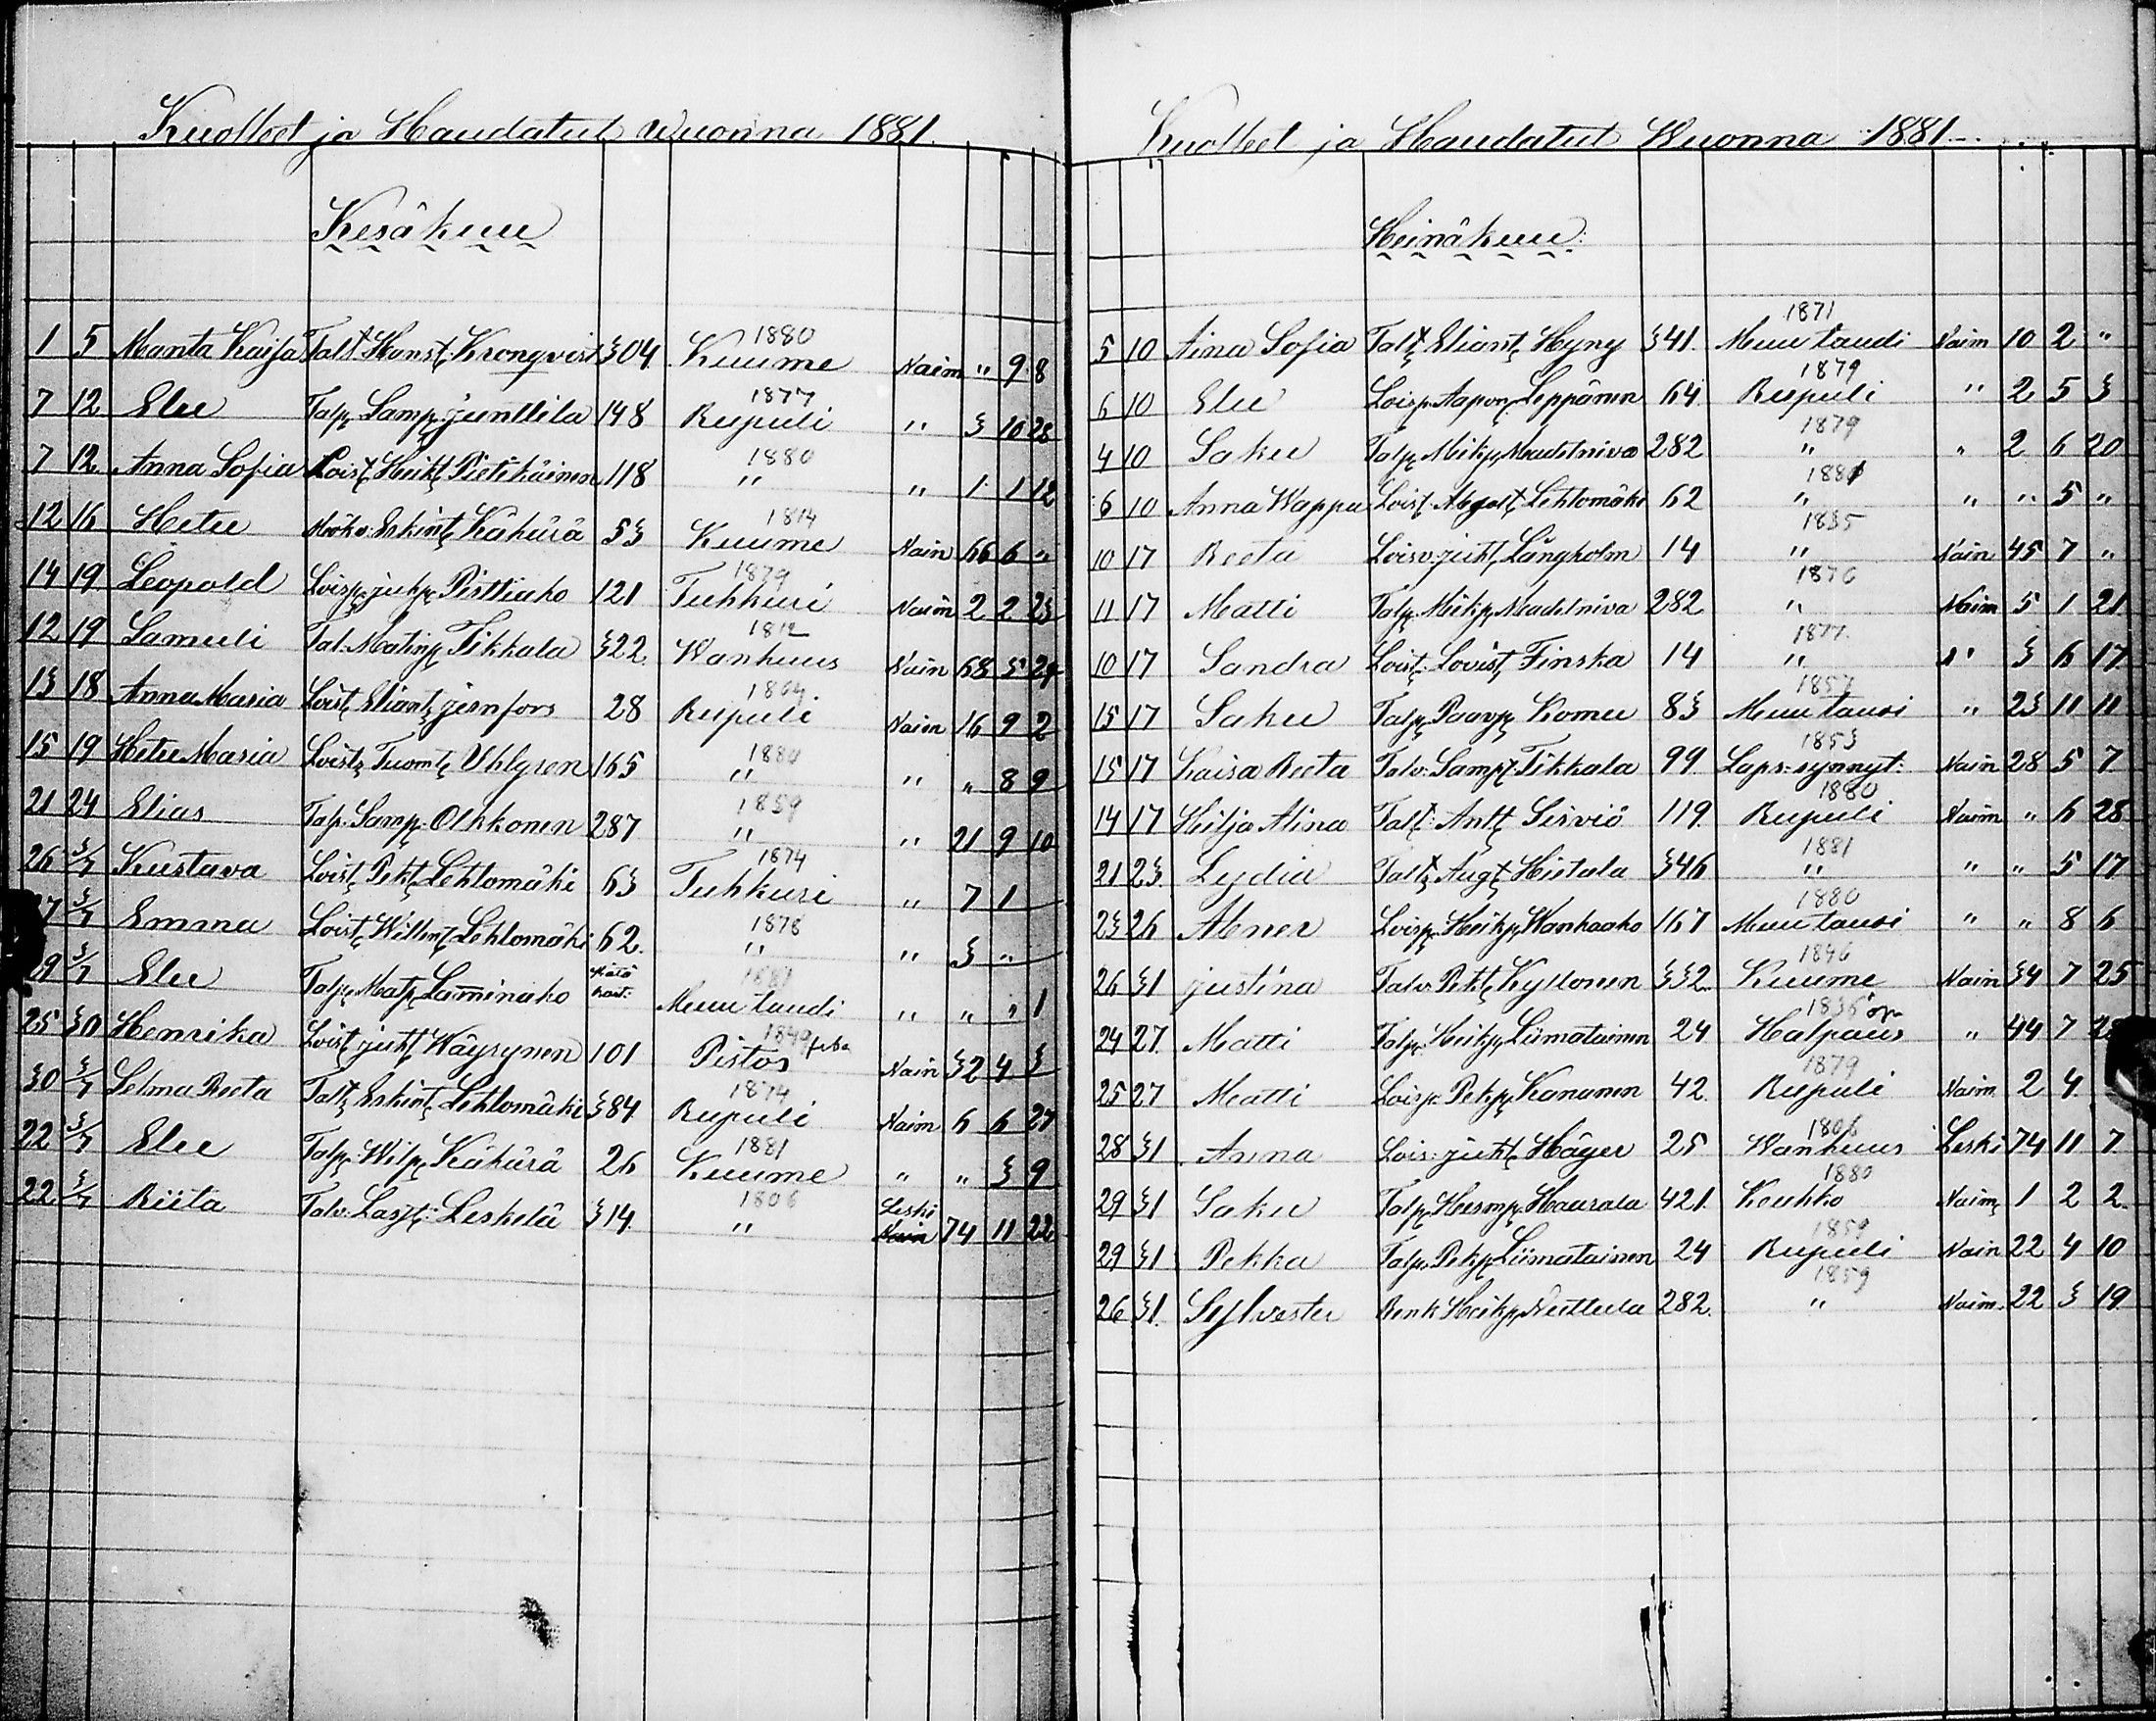 Kuolleet ja Haudatut Wuonna 1881.
Kesäkuu
1880
1 5 Manta Kaisa Talt Hanst. Kronqvist 304 Kuume Naim " 9 8
1877
7 12 Elu Talp. Samp. junttila 148 Rupuli " 3 10 28
1880
7 12 Anna Sofia Loist Heikt Pietikäinen 118 " " 1 1 12
1814
12 16 Hetu Eskint Kähärä 53 Kuume Nain 66 6 "
1879
14 19 Leopold Loisp. juhp. Pisttiaho 121 Tuhkuri Naim 2 2 23
1812
12 19 Samuli Tal. Matinp Tikkala 322 Wanhuus Nain 68 5 24
1864
13 18 Anna Maria Loist Eliant jernfors 28 Rupuli Naim 16 9 2
1880
15 19 Hetu Maria Loist Tuomt Uhlgren 165 " " " 8 9
1859
21 24 Elias Tap. Samp. Olkkonen 287 " " 21 9 10
1874
26 3/7 Kustava Loist Pekt Lehtomäki 63 Tuhkuri " 7 1
1878
27 3/7 Emma Loist Willmt Lehtomäki 62. " " 3 "
1881
29 3/7 Elu Talp. Matp. Lamminaho Muu taudi " " " 1
1849
25 30 Henrika Loist juht Wäyrynen 101 Pistos Nain 32 4 3
1874
30 3/7 Selma Reeta Talt Eskint Lehtomäki 384 Rupuli Naim 6 6 27
1881
22 3/7 Elu Talp. Wilp. Kähärä 26 Kuume " " 3 9
1806
22 3/7 Riita Talv. Lasst. Leskelä 314. " Leski Nain 74 11 22
Kuolleet ja Haudatut Wuonna 1881.
Heinäkuu
1871
5 10 Aina Sofia Talt Eliant Hyny 341. Muu taudi Naim 10 2 "
1879
6 10 Elu Loisp. Aapon. Leppänen 64 Rupuli " 2 5 3
1879
4 10 Saku Talp. Mikp. Maudelniva 282 " " 2 6 20
1881
6 10 Anna Wappu Loist. Lehtomäki 62 " " " 5 "
1835
10 17 Reeta Loisv. juht Långholm 14 " Nain 45 7 "
1876
11 17 Matti Talp. Mikp. Maudelniva 282 " Naim 5 1 21
1877
10 17 Sandra Loist. Lovist Finska 14 " " 3 6 17
1857
15 17 Saku Talp. Paavp. Komu 83 Muu tauti " 23 11 11
1853
15 17 Kaisa Reeta Talv. Samp. Tikkala 99. Laps. synnyt. Nain 28 5 7
1880
14 17 Hilja Alina Talt. Antt Sirviö 119. Rupuli Naim " 6 28
1881
21 23. Lydia Talt Augt Hietala 346 " " " 5 17
1880
23 26 Abner Loisp. Heikp. Wanhaaho 167 Muu tauti " " 8 6
1846
26 31 justina Talv. Pekt Kyllonen 332. Kuume Nain 34 7 25
1836
24 27. Matti Talp. Heikp. Liimatainen 24 Halpaus " 44 7 28
1879
25 27 Matti Loisp. Pekp. Kananen 42. Rupuli Naim. 2 4
1806
28 31 Anna Lois. juht Häger 25 Wanhuus Leski 74 11 7
1880
29 31 Saku Talp. Husmp. Haurala 421. Keuhko Naim 1 2 2
1859
29 31 Pekka Talp. Pekp. Liimatainen 24 Rupuli Nain 22 4 10
1859
26 31. Sylvester Renk Heikp. Neittula 282. " Naim. 22 3 19